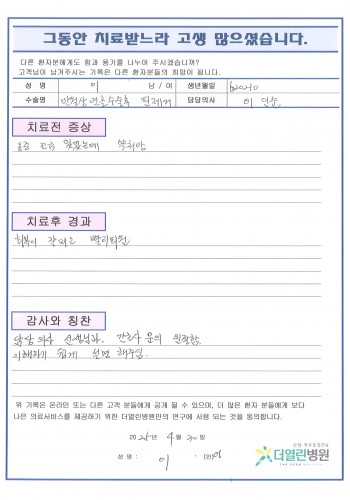 그동안 치료받느라 고생 많으셨습니다.
다른 환자분에게도 힘과 용기를 나누어 주시겠습니까?
고객님이 남겨주시는 기록은 다른 환자분들의 희망이 됩니다.
성 명 이 남 / 여 생년월일
수술명 반월상 연골수술후 핀제거 담당의사 이
치료전 증상
치료후 경과
회복이 잘되고 빨리퇴원
감사와 칭찬
담당 의사 선생님과, 간호사 분의 친절함.
이해하기 쉽게 설명 해주심.
위 기록은 온라인 또는 다른 고객 분들에게 공개 될 수 있으며, 더 많은 환자 분들에게 보다
나은 의료서비스를 제공하기 위한 더열린병원만의 연구에 사용 되는 것을 동의합니다.
20 년 4 월 30 일
성 명 : 이 (인)
더열린병원
THE OPEN